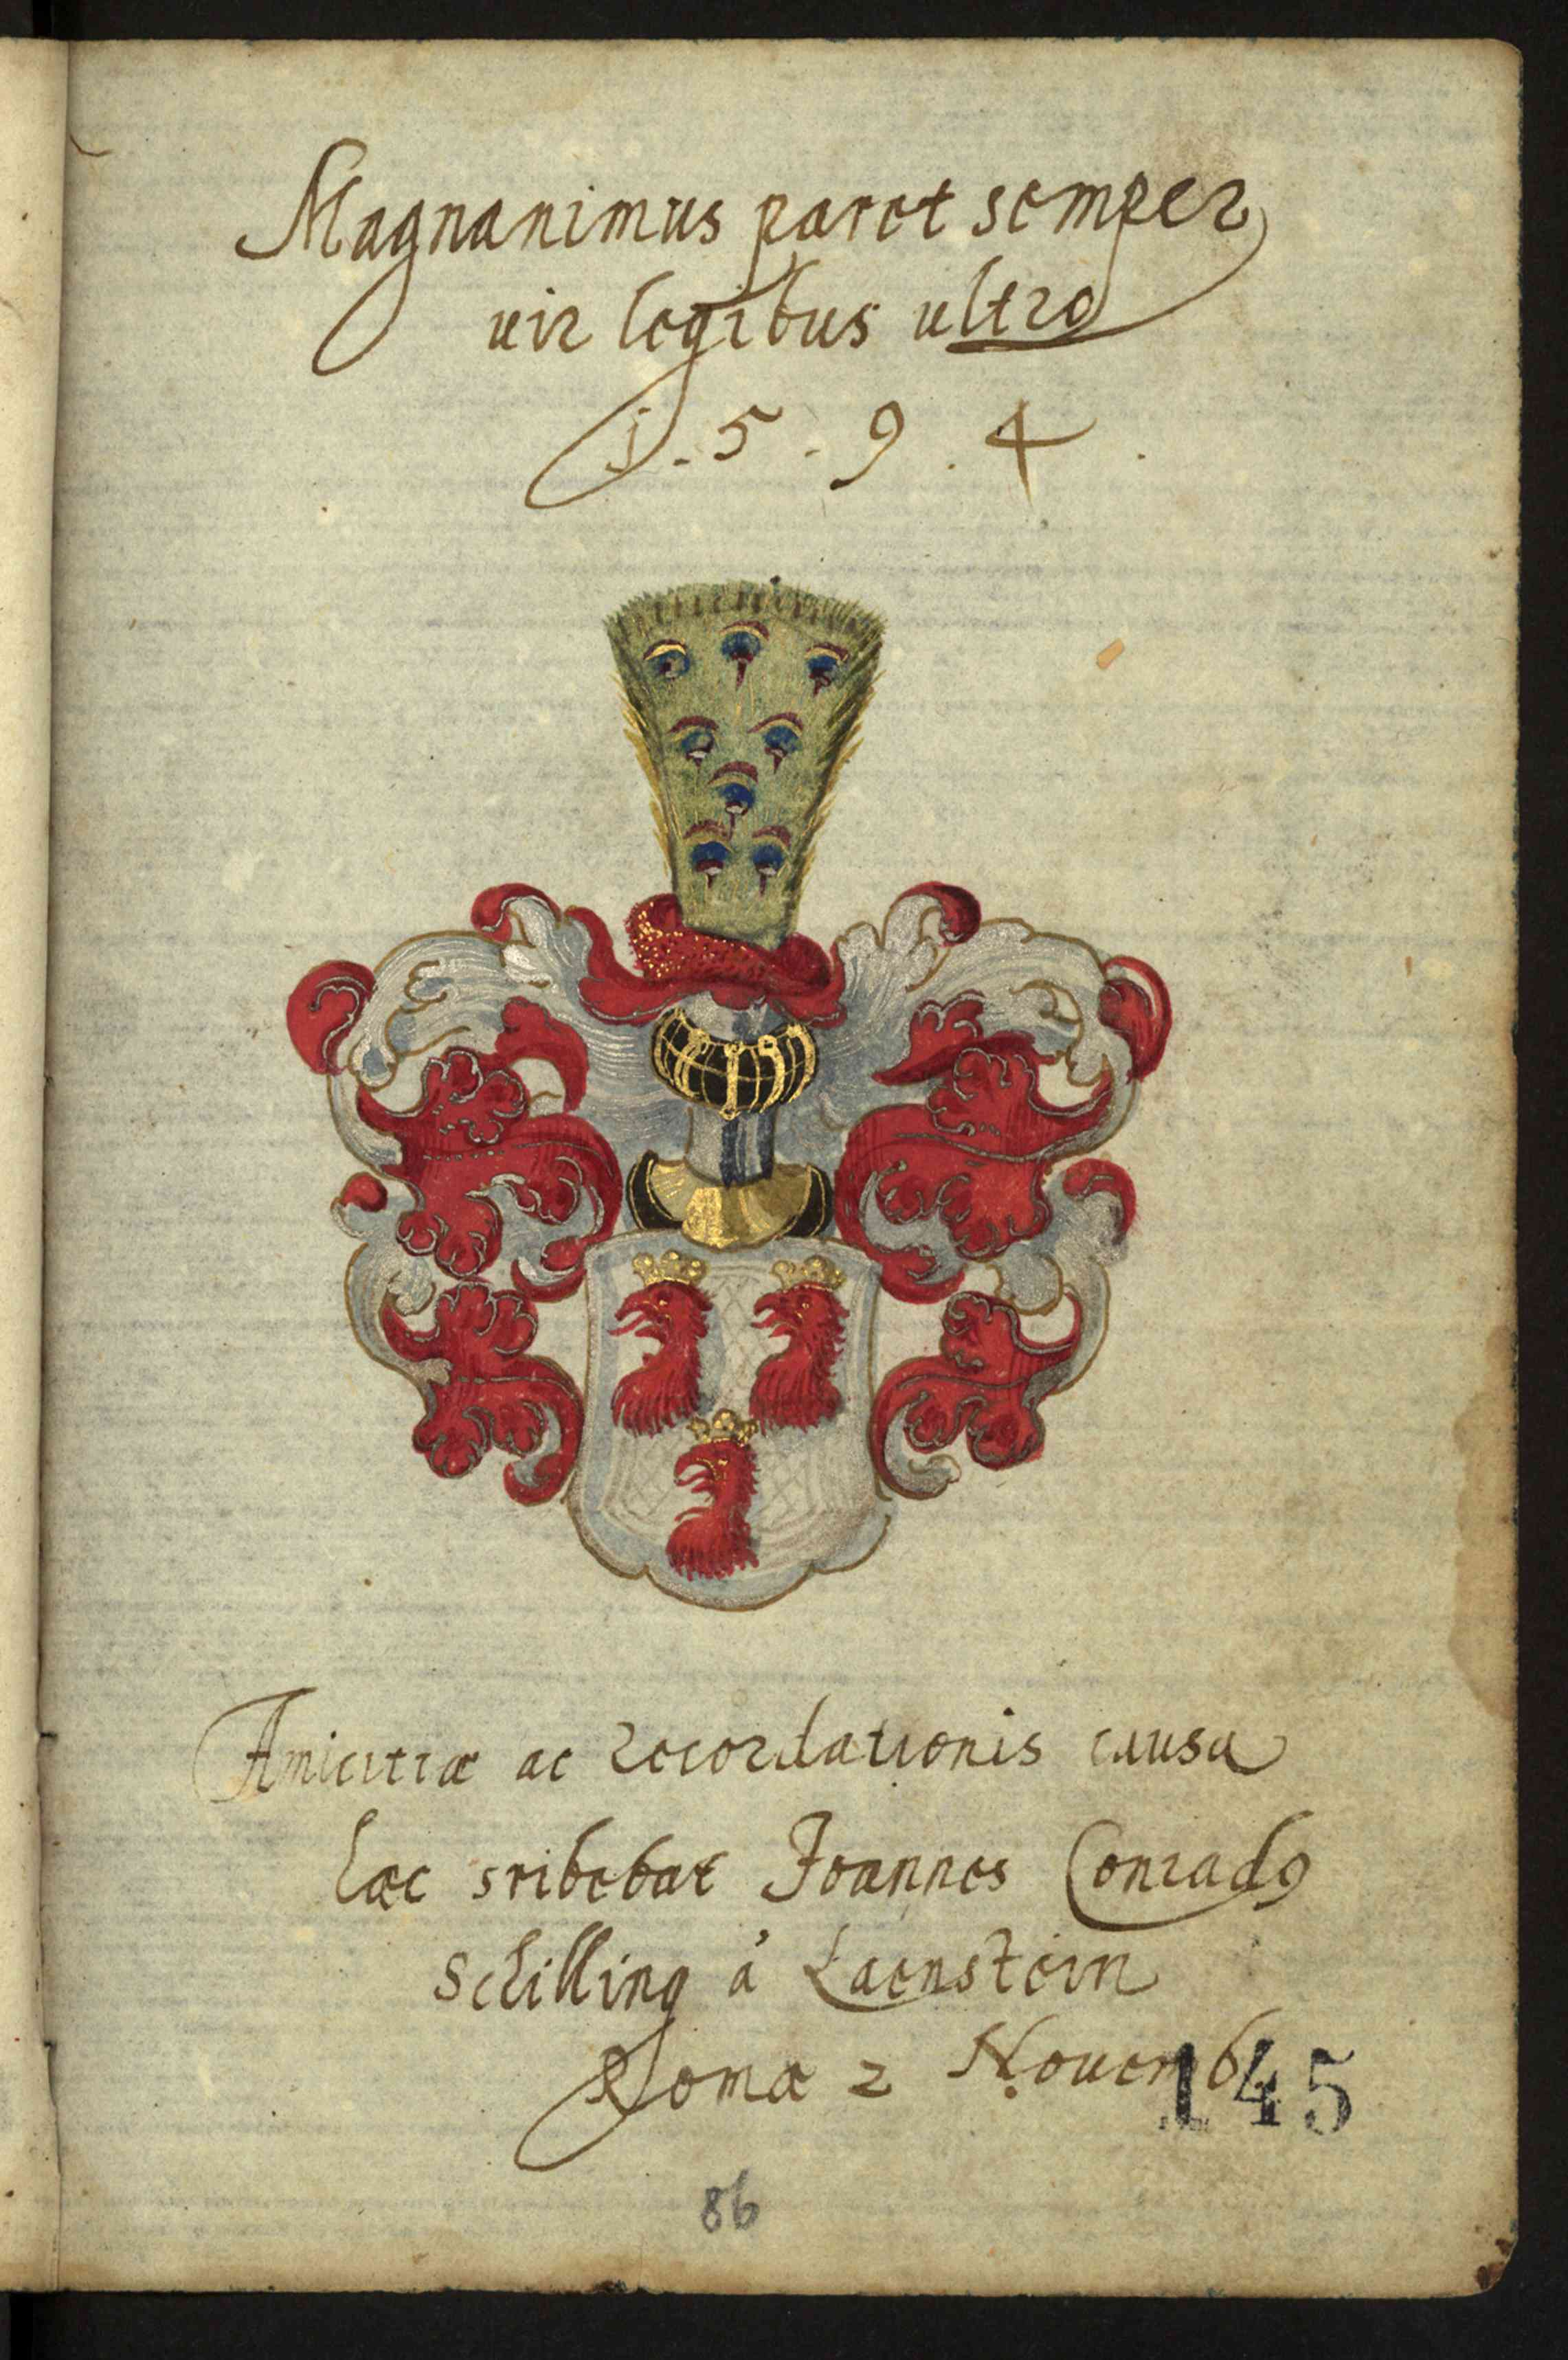 Magnanimus paret semper
uir legibus ultro
1 . 5 . 9 . 4 .
Amicitiæ ac recordationis causa
hæc sribebat Joannes Conradꝯ
Schilling à Laenstein
Romæ 2 Nouemb
145
86